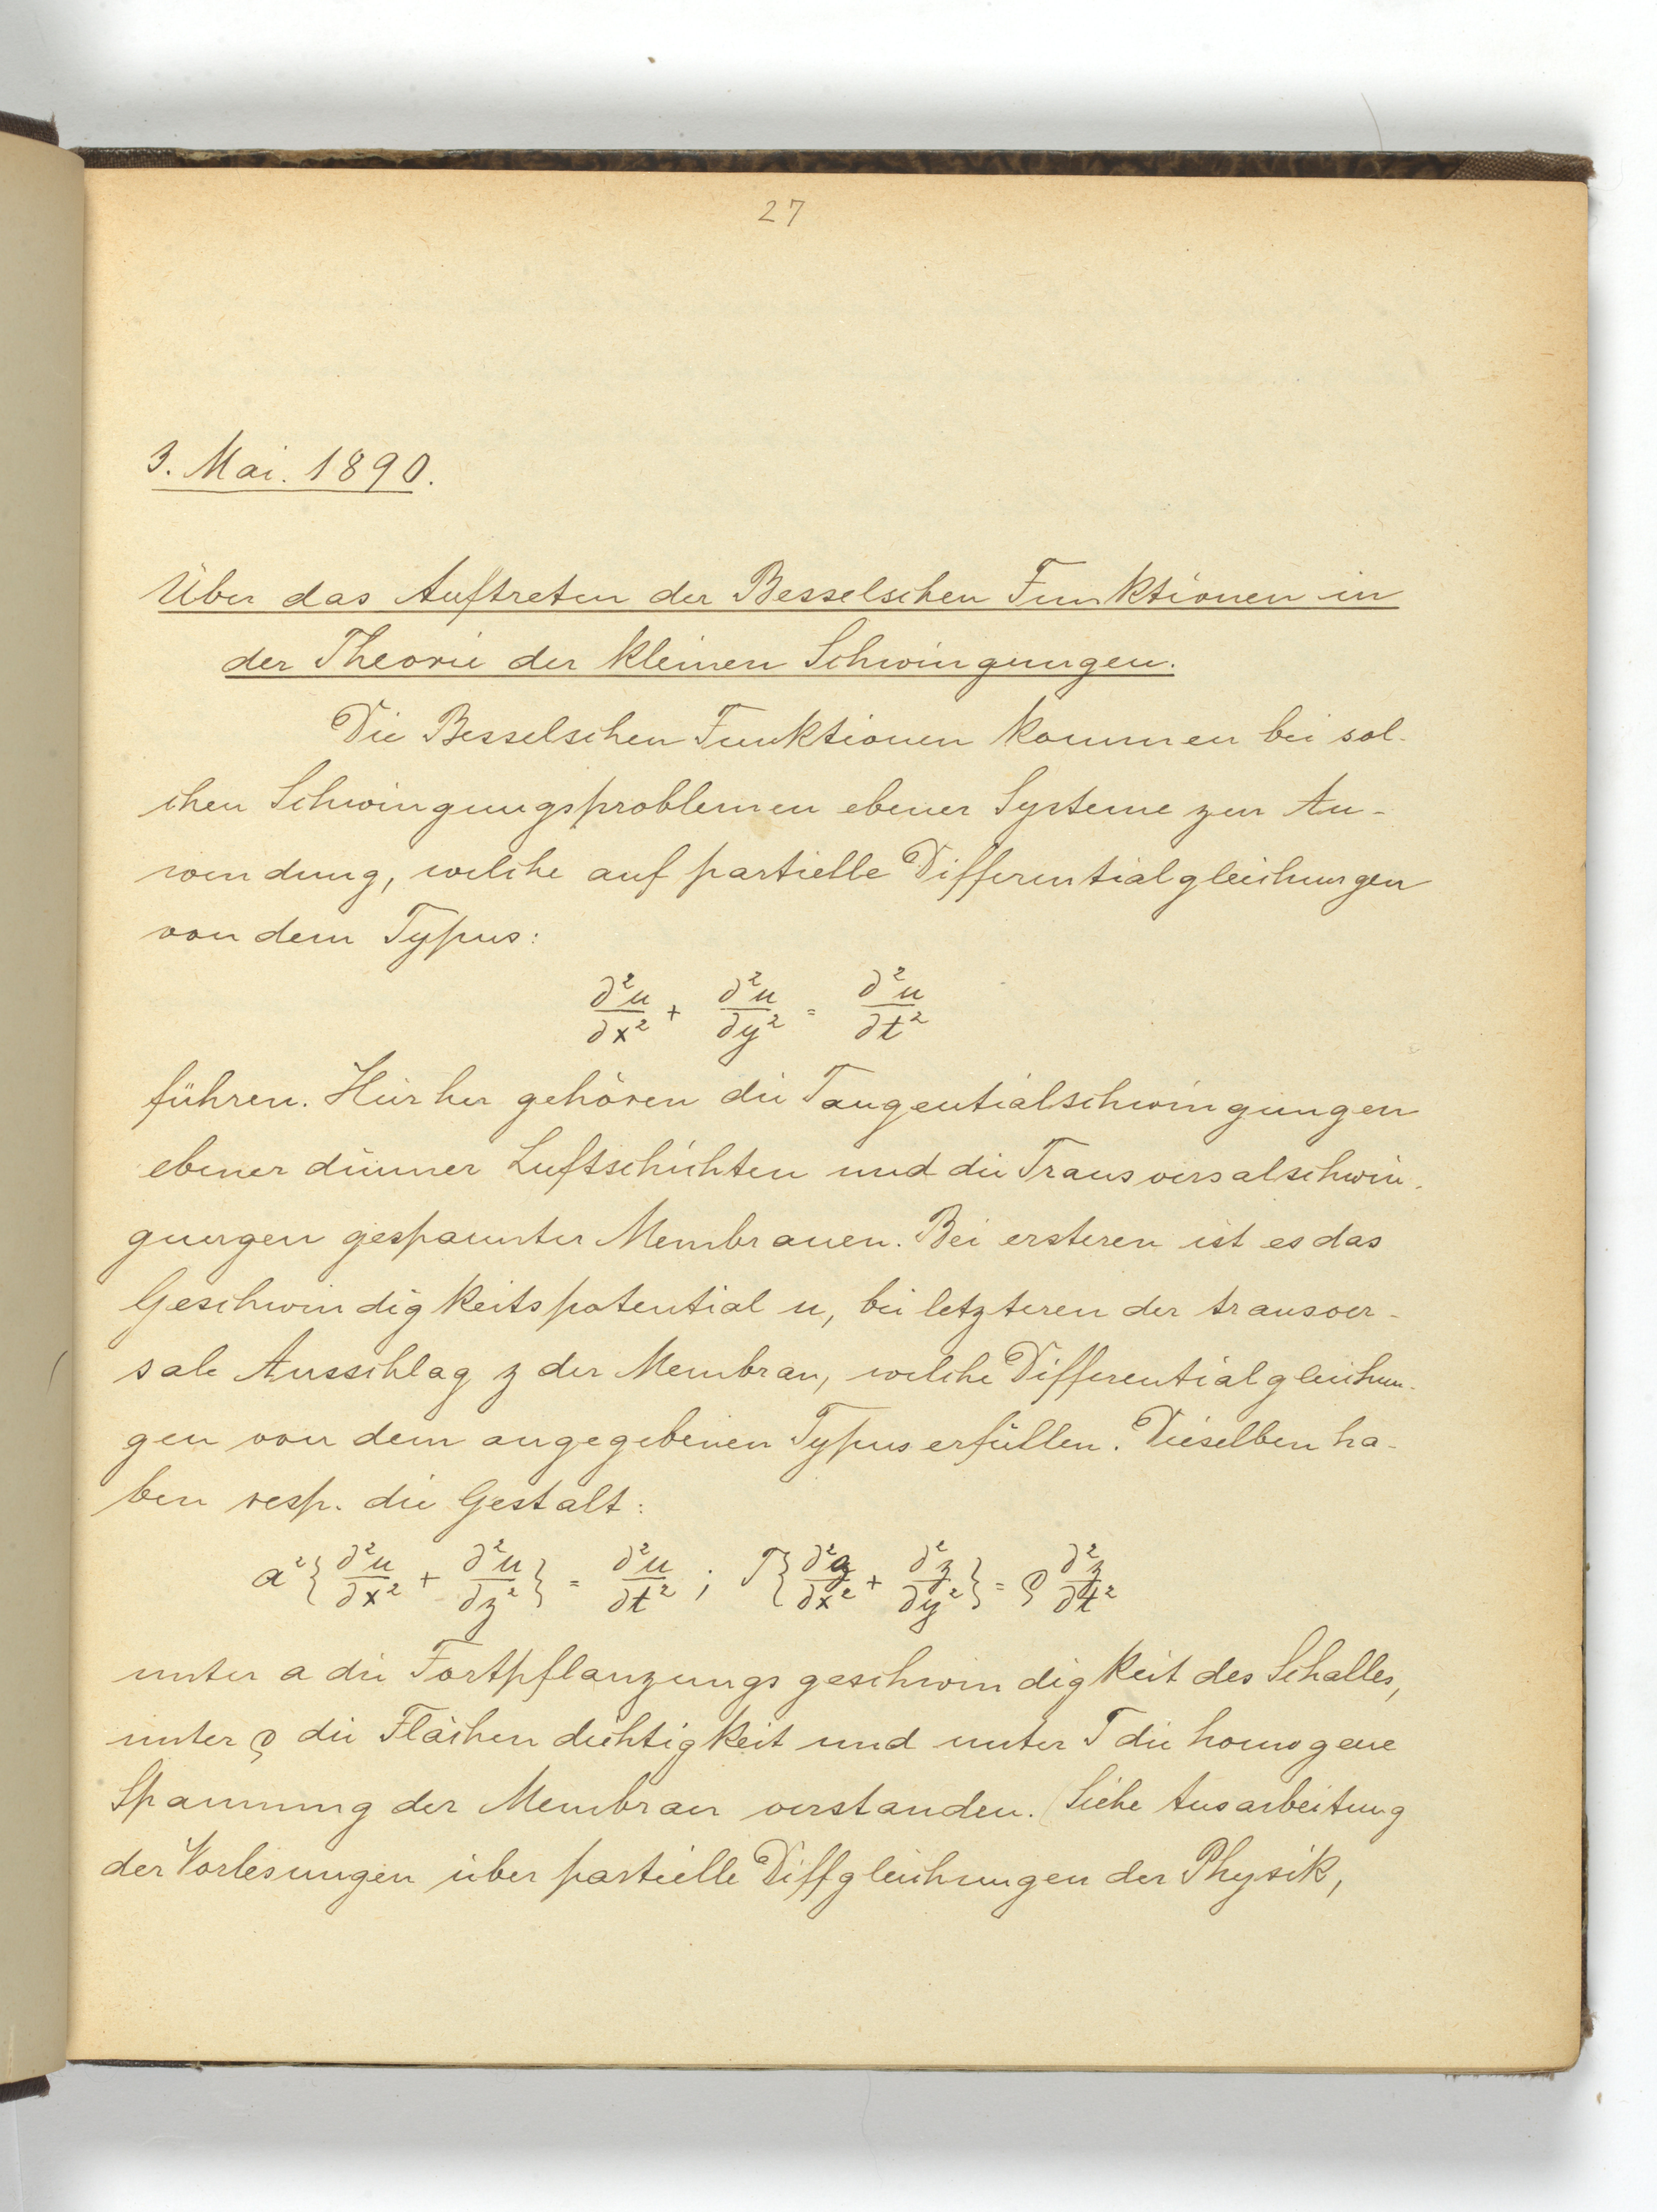 27
3. Mai. 1890.
Über das Auftreten der Besselschen Funktionen in
der Theorie der kleinen Schwingungen.
Die Besselschen Funktionen kommen bei sol-
chen Schwingungsproblemen ebener Systeme zur An-
wendung, welche auf partielle Differentialgleichungen
von dem Typus:
∂²u/∂x² + ∂²u/∂y² = ∂²u/∂t²
führen. Hierher gehören die Tangentialschwingungen
ebener dünner Luftschichten und die Transversalschwin-
gungen gespannter Membranen. Bei ersteren ist es das
Geschwindigkeitspotential u, bei letzteren der transver-
sale Ausschlag z der Membran, welche Differentialgleichun-
gen von dem angegebenen Typus erfüllen. Dieselben ha-
ben resp. die Gestalt:
a²{∂²u/∂x² + ∂²u/∂z²} = ∂²u/∂t² ; T{∂²z/∂x² + ∂²z/∂y²} = ρ ∂²z/∂t²
unter a die Fortpflanzungsgeschwindigkeit des Schalles,
unter ρ die Flächendichtigkeit und unter T die homogene
Spannung der Membran verstanden. (Siehe Ausarbeitung
der Vorlesungen über partielle Diffgleichungen der Physik,